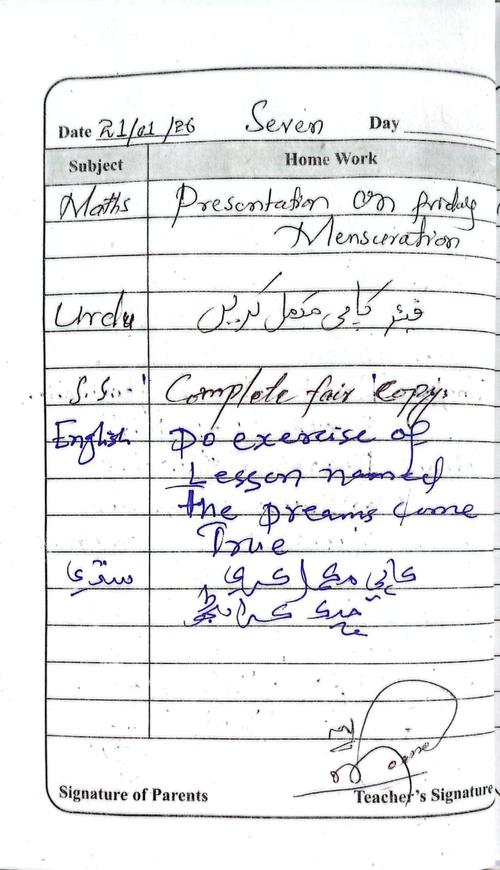 Date 21/01/26 Seven Day
Subject Home Work
Maths Presentation on friday
Mensuration
Urdu فیئر کاپی مکمل کریں
S.S. Complete fair copy.
English Do exercise of
Lesson named
the Dreams come
True
سنڌي ڪاپي مڪمل ڪري
Signature of Parents Teacher's Signature